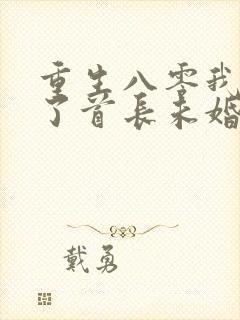 重生八零我
了首长未婚
戴勇